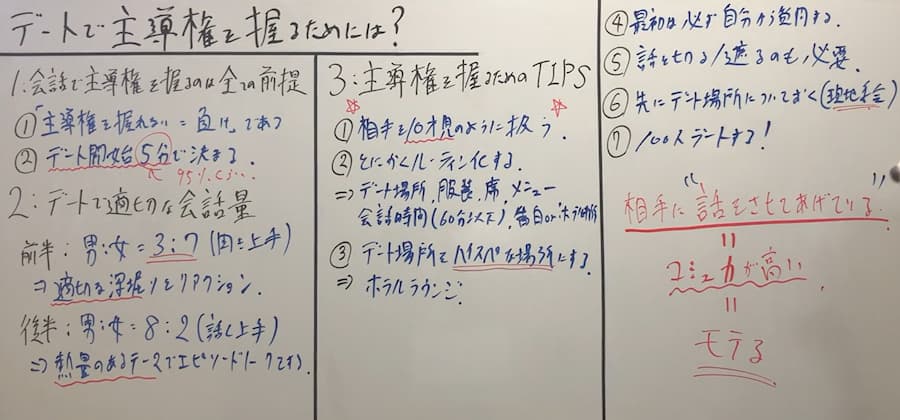 デートで主導権を握るためには?
1:会話で主導権を握るのは全ての前提
①「主導権を握れない=負け」である
②デート開始台5分で決まる.
95%くらい…
2:デートで適切な会話量
前半:男:女=3:7(聞き上手)
⇒適切な深堀りとリアクション.
後半:男:女=8:2(話し上手)
⇒熱量のあるテーマでエピソードトークをする
3:主導権を握るためのTIPS
①相手を10才児のように扱う.
②とにかくルーティン化する.
⇒デート場所,服装,席,メニュー
会話時間(60分以下),告白or
③デート場所をハイスペな場所にする.
⇒ホテルラウンジ.
④最初は必ず自分から質問する.
⑤話を切る/遮るのも必要.
⑥先にデート場所についておく(現地集合)
⑦100人デートする!
"相手に話をさせてあげている."
=
コミュ力が高い.
=
モテる